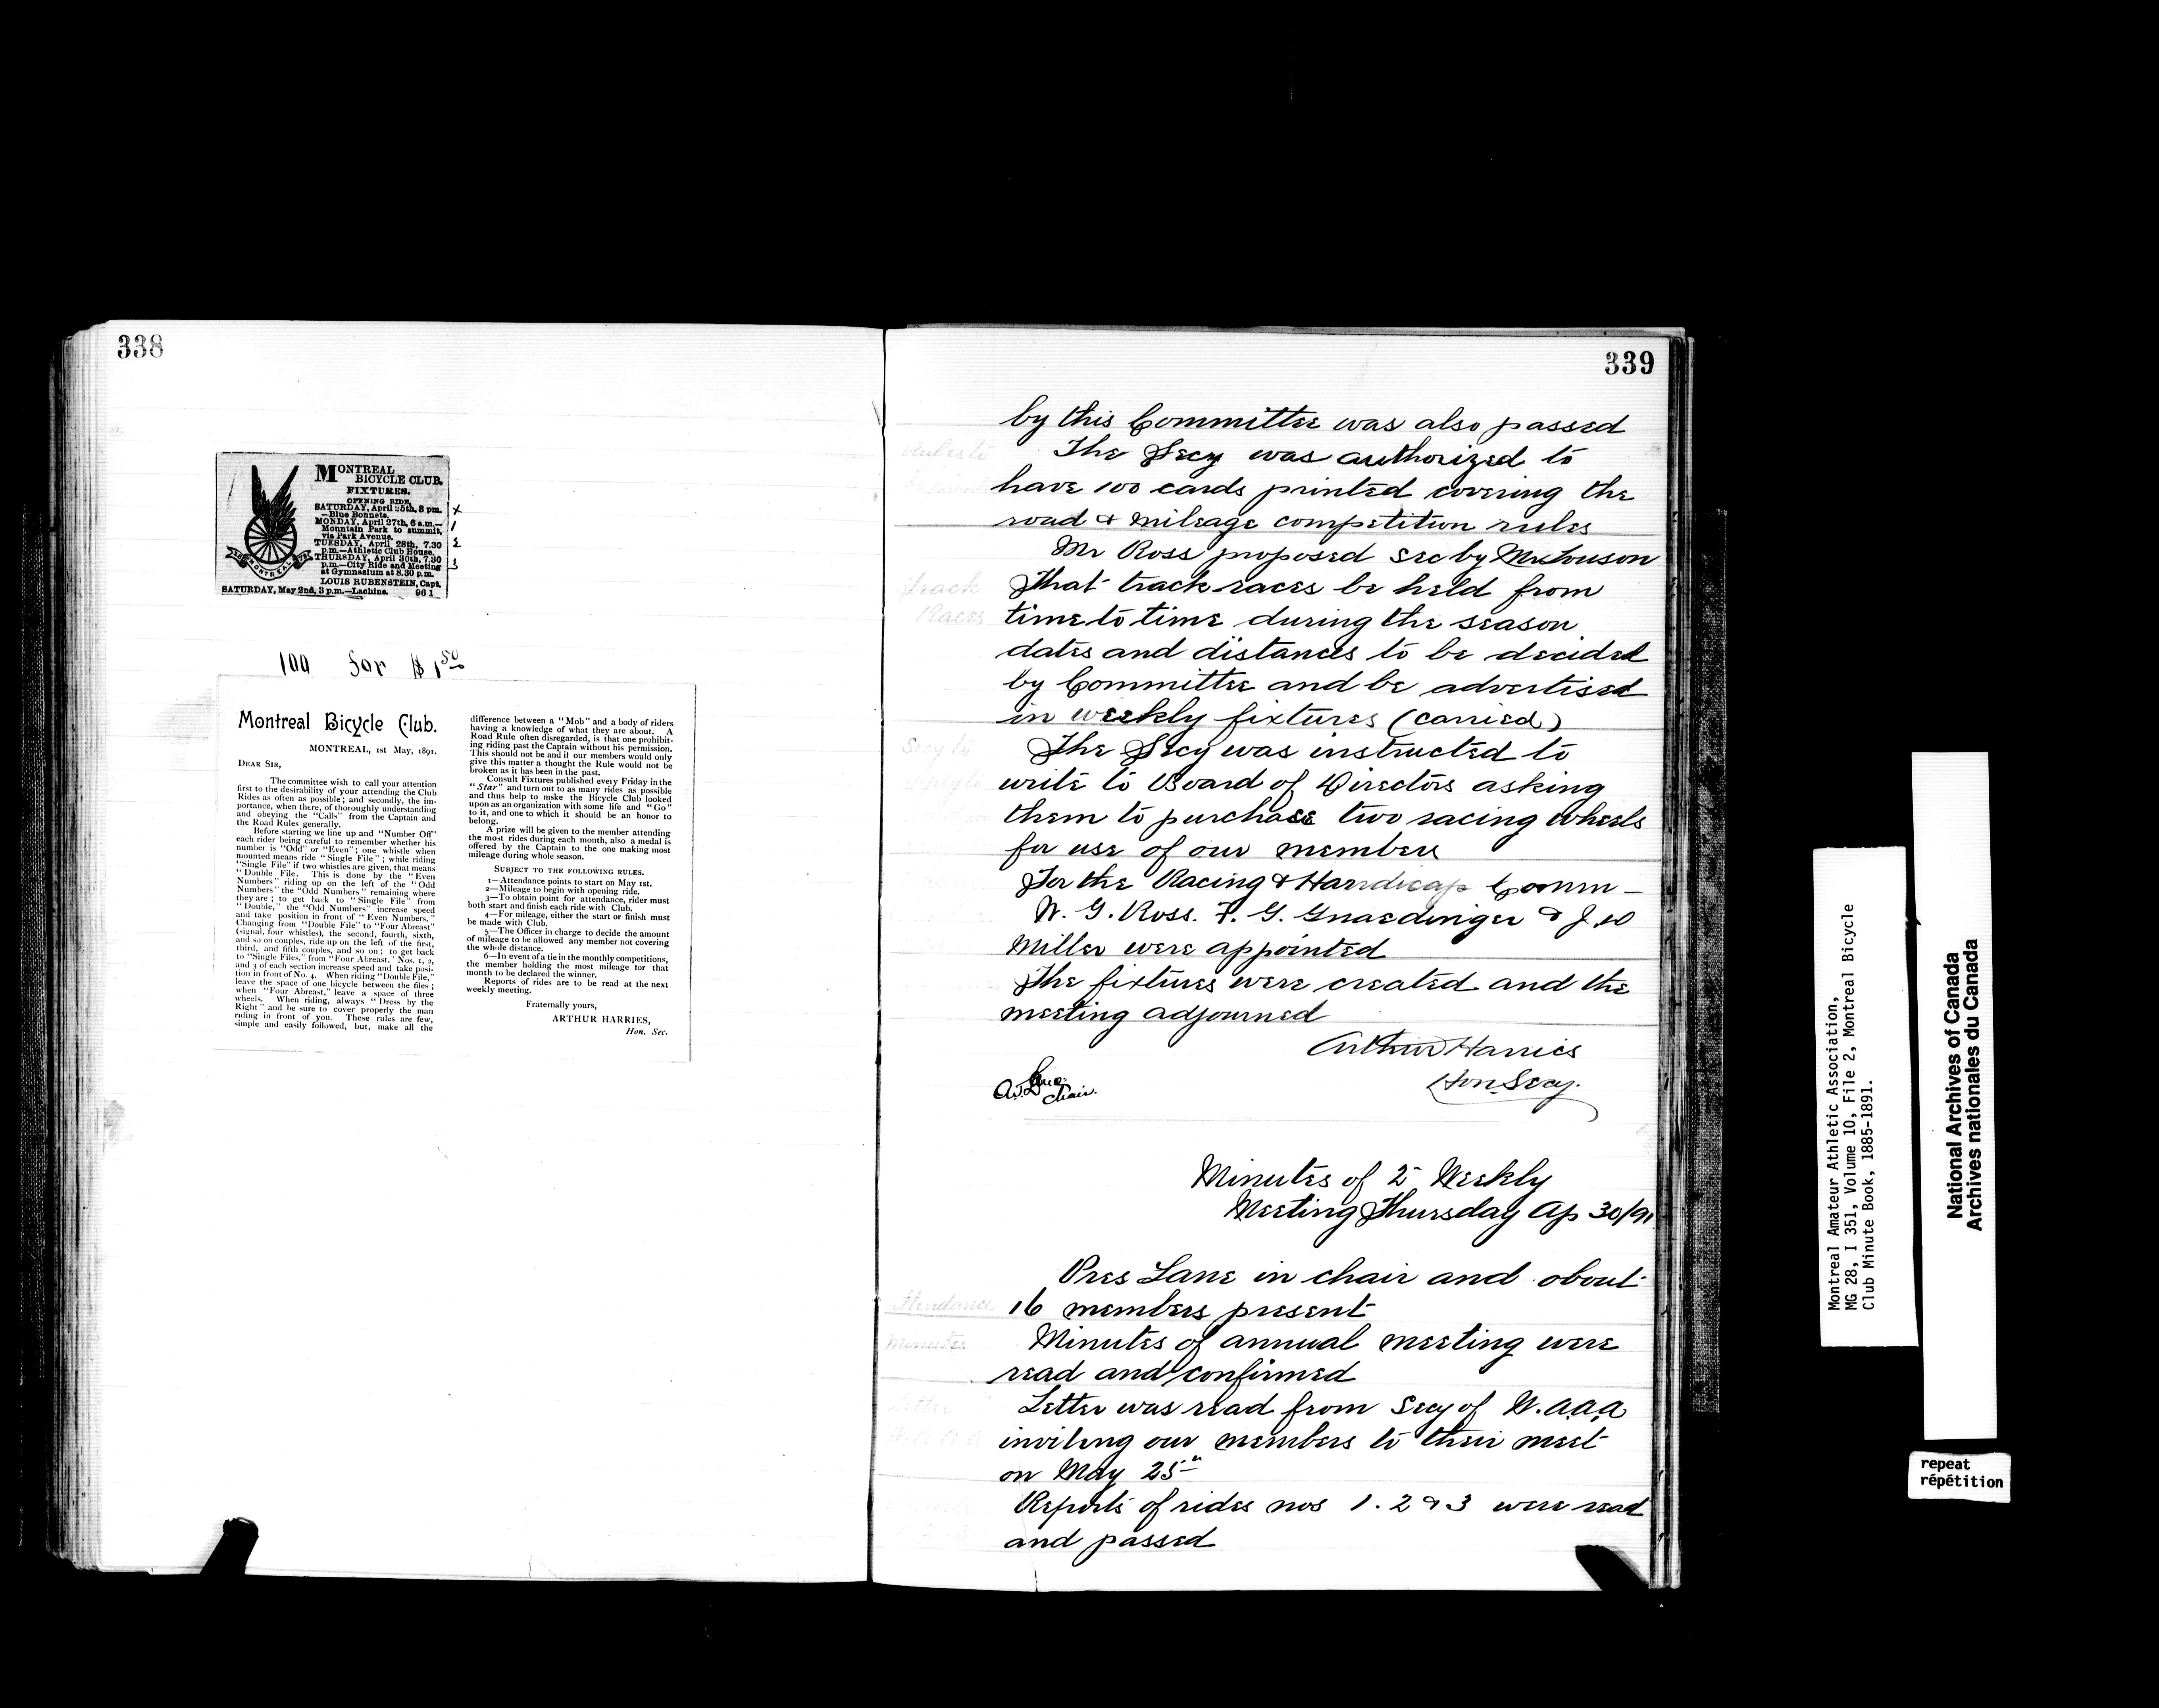 338
MONTREAL
BICYCLE CLUB.
FIXTURES.
OPENING RIDE,
SATURDAY, April 25th, 3 pm. x
—Blue Bonnets.
MONDAY, April 27th, 6 a.m.— 1
Mountain Park to summit,
via Park Avenue.
TUESDAY, April 28th, 7.30 2
p.m.—Athletic Club House.
THURSDAY, April 30th, 7.30
p.m.—City Ride and Meeting 3
at Gymnasium at 8.30 p.m.
LOUIS RUBENSTEIN, Capt.
SATURDAY, May 2nd, 3 p.m.—Lachine. 96 1
MONTREAL
100 for $1.50
Montreal Bicycle Club.
MONTREAL, 1st May, 1891.
DEAR SIR,
The committee wish to call your attention
first to the desirability of your attending the Club
Rides as often as possible; and secondly, the im-
portance, when there, of thoroughly understanding
and obeying the "Calls" from the Captain and
the Road Rules generally.
Before starting we line up and "Number Off"
each rider being careful to remember whether his
number is "Odd" or "Even"; one whistle when
mounted means ride "Single File"; while riding
"Single File" if two whistles are given, that means
"Double File. This is done by the "Even
Numbers" riding up on the left of the "Odd
Numbers" the "Odd Numbers" remaining where
they are; to get back to "Single File" from
"Double," the "Odd Numbers" increase speed
and take position in front of "Even Numbers."
Changing from "Double File" to "Four Abreast"
(signal, four whistles), the second, fourth, sixth,
and so on couples, ride up on the left of the first,
third, and fifth couples, and so on; to get back
to "Single Files," from "Four Abreast," Nos. 1, 2,
and 3 of each section increase speed and take posi-
tion in front of No. 4. When riding "Double File,"
leave the space of one bicycle between the files;
when "Four Abreast," leave a space of three
wheels. When riding, always "Dress by the
Right" and be sure to cover properly the man
riding in front of you. These rules are few,
simple and easily followed, but, make all the
difference between a "Mob" and a body of riders
having a knowledge of what they are about. A
Road Rule often disregarded, is that one prohibit-
ing riding past the Captain without his permission.
This should not be and if our members would only
give this matter a thought the Rule would not be
broken as it has been in the past.
Consult Fixtures published every Friday in the
"Star" and turn out to as many rides as possible
and thus help to make the Bicycle Club looked
upon as an organization with some life and "Go"
to it, and one to which it should be an honor to
belong.
A prize will be given to the member attending
the most rides during each month, also a medal is
offered by the Captain to the one making most
mileage during whole season.
SUBJECT TO THE FOLLOWING RULES.
1—Attendance points to start on May 1st.
2—Mileage to begin with opening ride.
3—To obtain point for attendance, rider must
both start and finish each ride with Club.
4—For mileage, either the start or finish must
be made with Club.
5—The Officer in charge to decide the amount
of mileage to be allowed any member not covering
the whole distance.
6—In event of a tie in the monthly competitions,
the member holding the most mileage for that
month to be declared the winner.
Reports of rides are to be read at the next
weekly meeting.
Fraternally yours,
ARTHUR HARRIES,
Hon. Sec.
339
by this Committee was also passed
Rules to The Secy was authorized to
have 100 cards printed covering the
road & mileage competition rules
Mr Ross proposed sec by Mr Louson
Track That track races be held from
Races time to time during the season
dates and distances to be decided
by Committee and be advertised
in weekly fixtures (carried)
Secy to The Secy was instructed to
write to Board of Directors asking
them to purchase two racing wheels
for use of our members
For the Racing & Handicap Comm—
W. G. Ross. F. G. Gnaedinger & J. W
Miller were appointed
The fixtures were created and the
meeting adjourned
Arthur Harries
Hon Secy.
Chair.
Minutes of 2 Weekly
Meeting Thursday Ap 30/91
Pres Lane in chair and about
Attendance 16 members present
Minutes Minutes of annual meeting were
read and confirmed
Letter Letter was read from Secy of W.A.A.A
W.A.A.A inviting our members to their meet
on May 25"
Reports of rides nos 1. 2 & 3 were read
and passed
Montreal Amateur Athletic Association,
MG 28, I 351, Volume 10, File 2, Montreal Bicycle
Club Minute Book, 1885-1891.
National Archives of Canada
Archives nationales du Canada
repeat
répétition